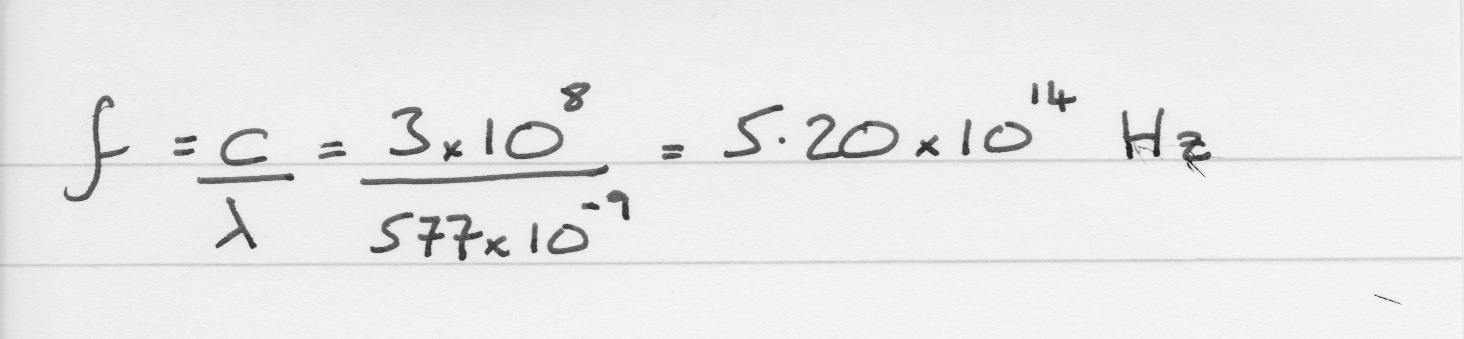 f = c/λ = 3×10⁸/577×10⁻⁹ = 5.20×10¹⁴ Hz